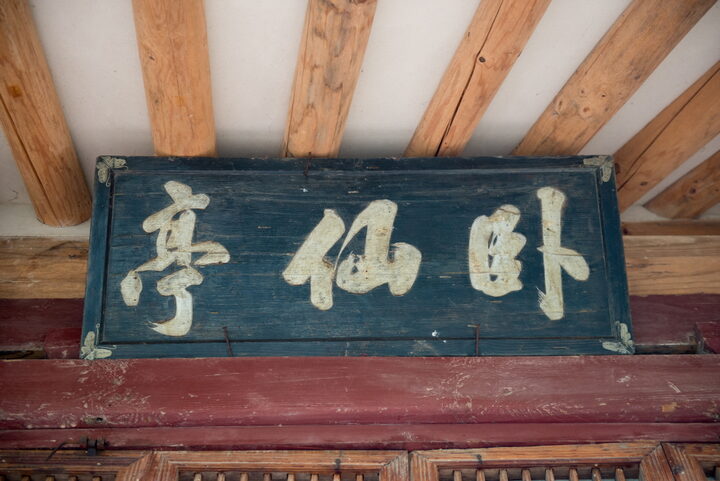 臥仙亭